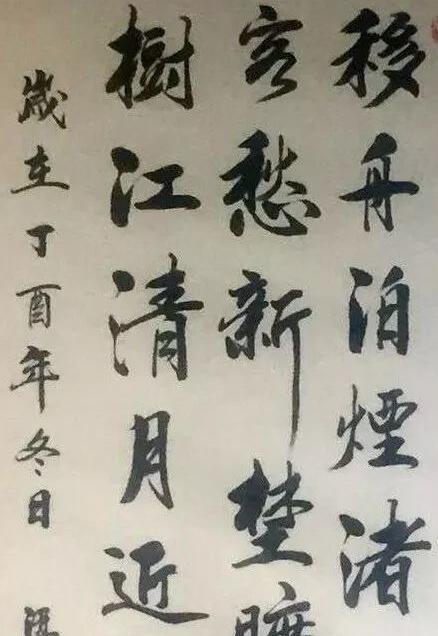 移舟泊煙渚
客愁新埜
樹江清月近
歲在丁酉年冬日